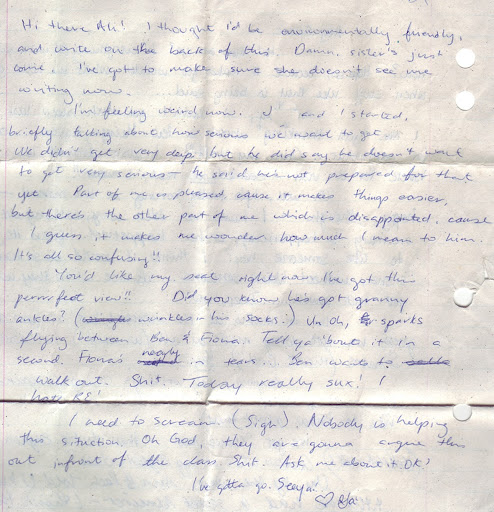 Hi there Ali! I thought I'd be environmentally friendly,
and write on the back of this. Damn, sister's just
come. I've got to make sure she doesn't see me
writing now.
I'm feeling weird now. J and I started,
briefly talking about how serious we want to get.
We didn't get very deep but he did say he doesn't want
to get very serious – he said he's not prepared for that
yet. Part of me is pleased, cause it makes things easier,
but there's the other part of me which is disappointed, cause
I guess it makes me wonder how much I mean to him.
It's all so confusing!!
You'd like my seat right now. I've got the
perrrfect view!! Did you know he's got granny
ankles? (wrinkles in his socks.) Uh oh, sparks
flying between Ben & Fiona. Tell ya 'bout it in a
second. Fiona's nearly in tears... Ben wants to
walk out. Shit. Today really sux!!
hate RE!
I need to scream. (Sigh). Nobody is helping
this situation. Oh God, they are gonna argue this
out infront of the class. Shit. Ask me about it, OK?
I've gotta go. Seeya!